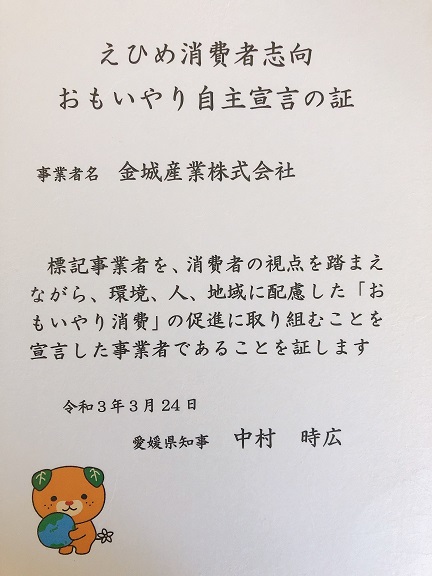 えひめ消費者志向
おもいやり自主宣言の証
事業者名 金城産業株式会社
標記事業者を、消費者の視点を踏まえ
ながら、環境、人、地域に配慮した「お
もいやり消費」の促進に取り組むことを
宣言した事業者であることを証します
令和3年3月24日
愛媛県知事 中村 時広